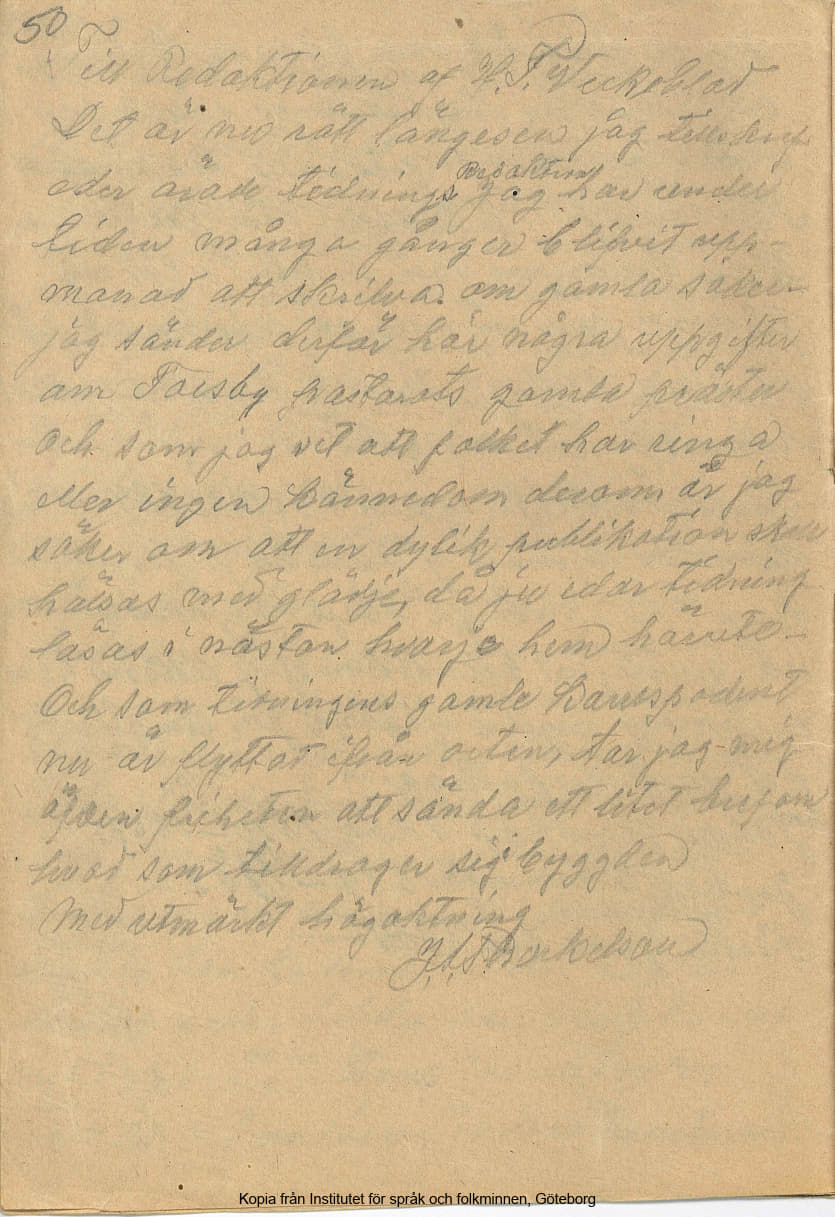 50
Till Redaktionen af H. T. Veckoblad
Det är nu rätt längesen jag tillskref
Redaktion
eder ärade tidnings jag har under
tiden många gånger blifvit upp-
manad att skrifva om gamla saker
jag sänder derför här några uppgifter
om Torsby pastorats gamla präster
och som jag vet att folket har ringa
eller ingen kännedom derom är jag
säker om att en dylik publikation skall
hälsas med glädje, då ju edar tidning
läsas i nästan hvarje hem härute –
Och som tidningens gamle Korrespodent
nu är flyttad ifrån orten, tar jag mig
äfven friheten att sända ett litet bref om
hvad som tilldrager sig i byggden
Med utmärkt högaktning
Kopia från Institutet för språk och folkminnen, Göteborg